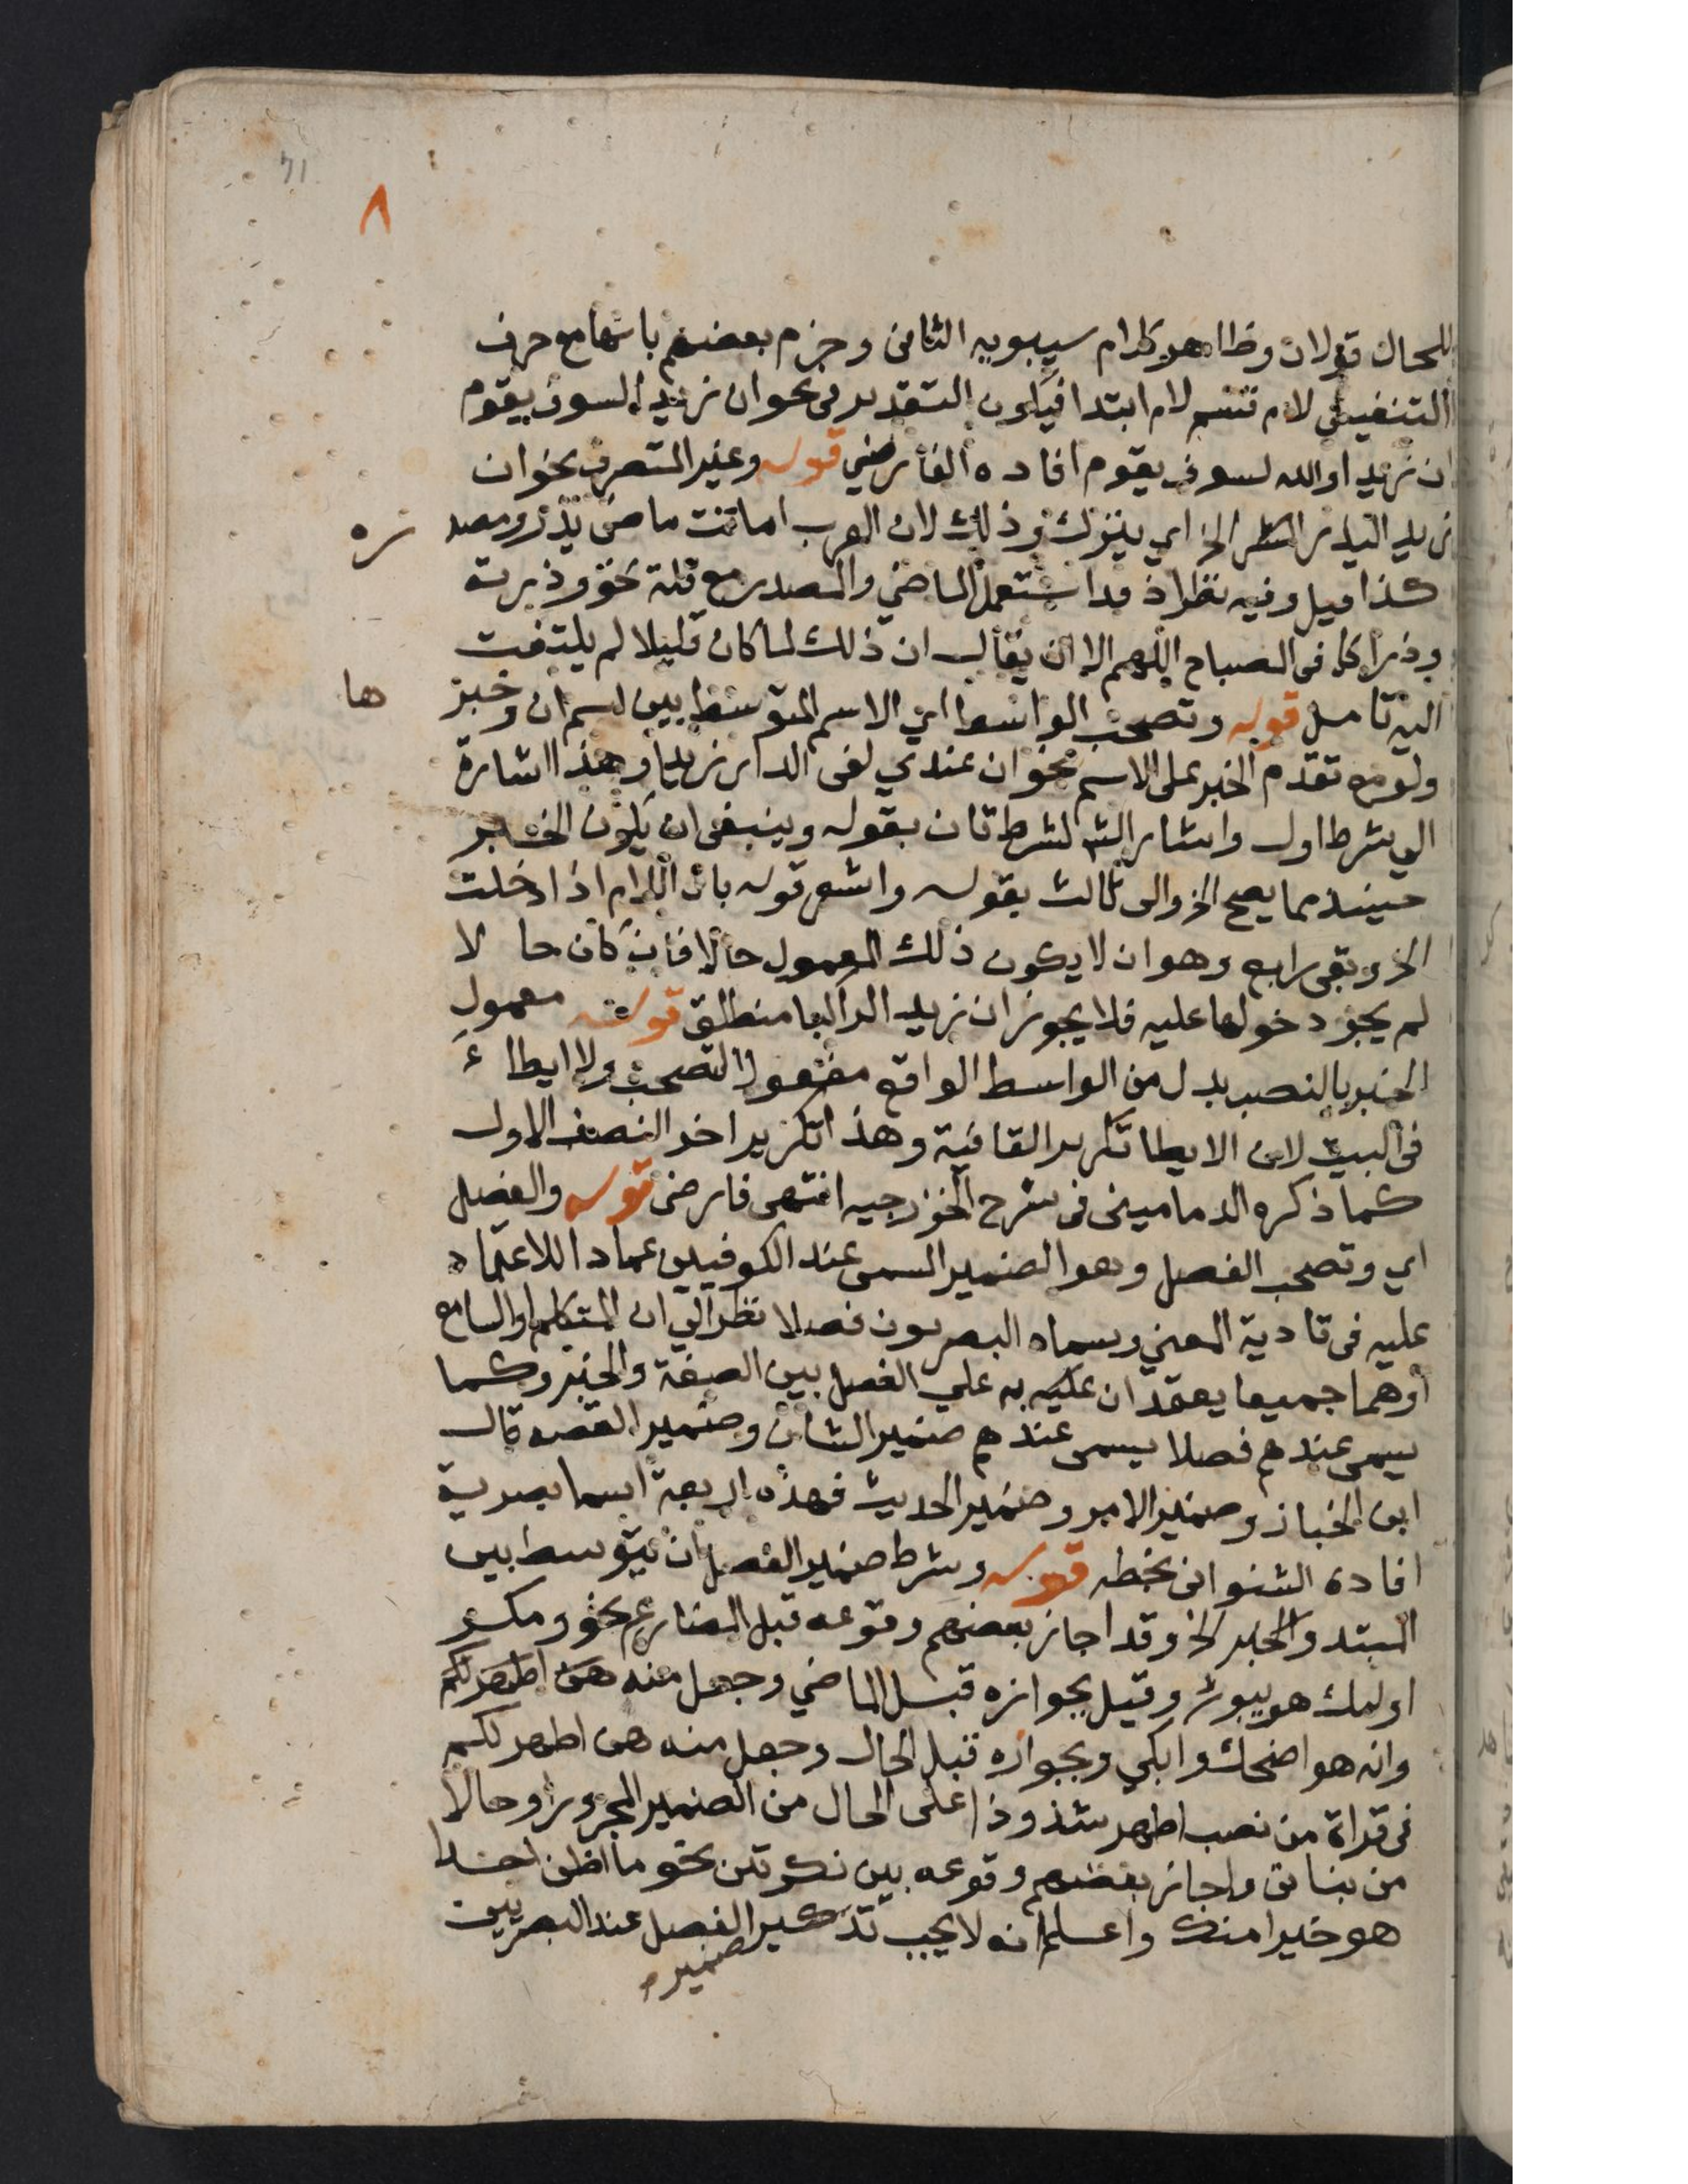 71
٨
للحال قولان وظاهر كلام سيبويه الثانى وجزم بعضهم بانها مع حرف
التنفيس لام قسم لام ابتدا فيكون التقدير فى نحو ان زيدا لسوف يقوم
ان زيدا والله لسوف يقوم افاده الفارضي قوله وغير المتصرف نحو ان
زيدا ليذر الشر الخ اي يترك وذلك لان العرب اماتت ماضى يذر ومصد ره
كذا قيل وفيه نظر اذ قد استعمل الماضي والمصدر مع قلة نحو وذرته
وذرا كما فى المصباح اللهم الا ان يقال ان ذلك لما كان قليلا لم يلتفت
اليه تامل قوله وتصحب الواسط اي الاسم المتوسط بين اسم ان وخبر ها
ولو مع تقدم الخبر على الاسم نحو ان عندي لفى الدار زيدا وهذا اشارة
الى شرط اول واشار الى شرط ثان بقوله وينبغى ان يكون الخبر
حينئذ مما يصح الخ والى ثالث بقوله واشعر قوله بان اللام اذا دخلت
الخ وبقى رابع وهو ان لا يكون ذلك المعمول حالا فان كان حا لا
لم يجز دخولها عليه فلا يجوز ان زيدا لراكبا منطلق قوله معمول
الخبر بالنصب بدل من الواسط الواقع مفعولا لتصحب ولا ايطاء
فى البيت لان الايطا تكرير القافية وهذا تكرير اخر النصف الاول
كما ذكره الدمامينى فى شرح الخزرجيه انتهى فارضى قوله والفصل
اي وتصحب الفصل وهو الضمير المسمى عند الكوفيين عمادا للاعتماد
عليه فى تادية المعنى وسماه البصريون فصلا نظرا الى ان المتكلم او السامع
او هما جميعا يعتمدان عليه به على الفصل بين الصفة والخبر وكما
يسمى عندهم فصلا يسمى عندهم ضمير الشان وضمير القصه قال
ابن الخباز وضمير الامر وضمير الحديث فهذه اربعة اسما بصرية
افاده الشنوانى بخطه قوله وشرط ضمير الفصل ان يتوسط بين
المبتد والخبر الخ وقد اجاز بعضهم وقوعه قبل المضارع نحو ومكر
اولئك هو يبور وقيل بجوازه قبل الماضي وجعل منه هن اطهر لكم
وانه هو اضحك وابكي وبجوازه قبل الحال وجعل منه هن اطهر لكم
فى قراة من نصب اطهر شذوذا على الحال من الضمير المجرور او حالا
من بناتى واجاز بعضهم وقوعه بين نكرتين نحو ما اظن احدا
هو خيرا منك واعلم انه لا يجب تذكير الفصل عند البصريين
ضمير